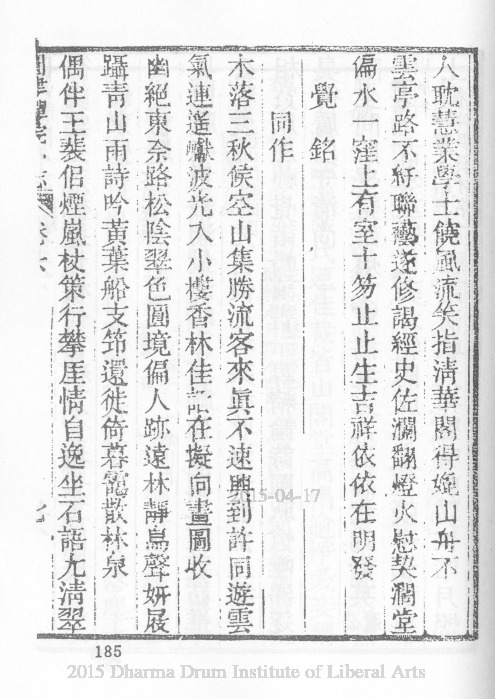 人耽慧業學士饒風流笑指清華閣得嬾山舟不
雲亭路不紆聯藝遂修謁經史佐瀾翻燈火慰契濶堂
偏水一窪上有室十笏止止生吉祥依依在明發
覺銘
同作
木落三秋候空山集勝流客來眞不速興到許同遊雲
氣連遙巘波光入小樓香林佳記在擬向畫圖收
幽絕東奈路松陰翠色圓境偏人跡遠林靜鳥聲妍屐
躡青山雨詩吟黃葉船支筇還徙倚暮靄散林泉
偶伴王裴侶煙嵐杖策行攀厓情自逸坐石語尤清翠
志 卷六
2015-04-17
185
2015 Dharma Drum Institute of Liberal Arts